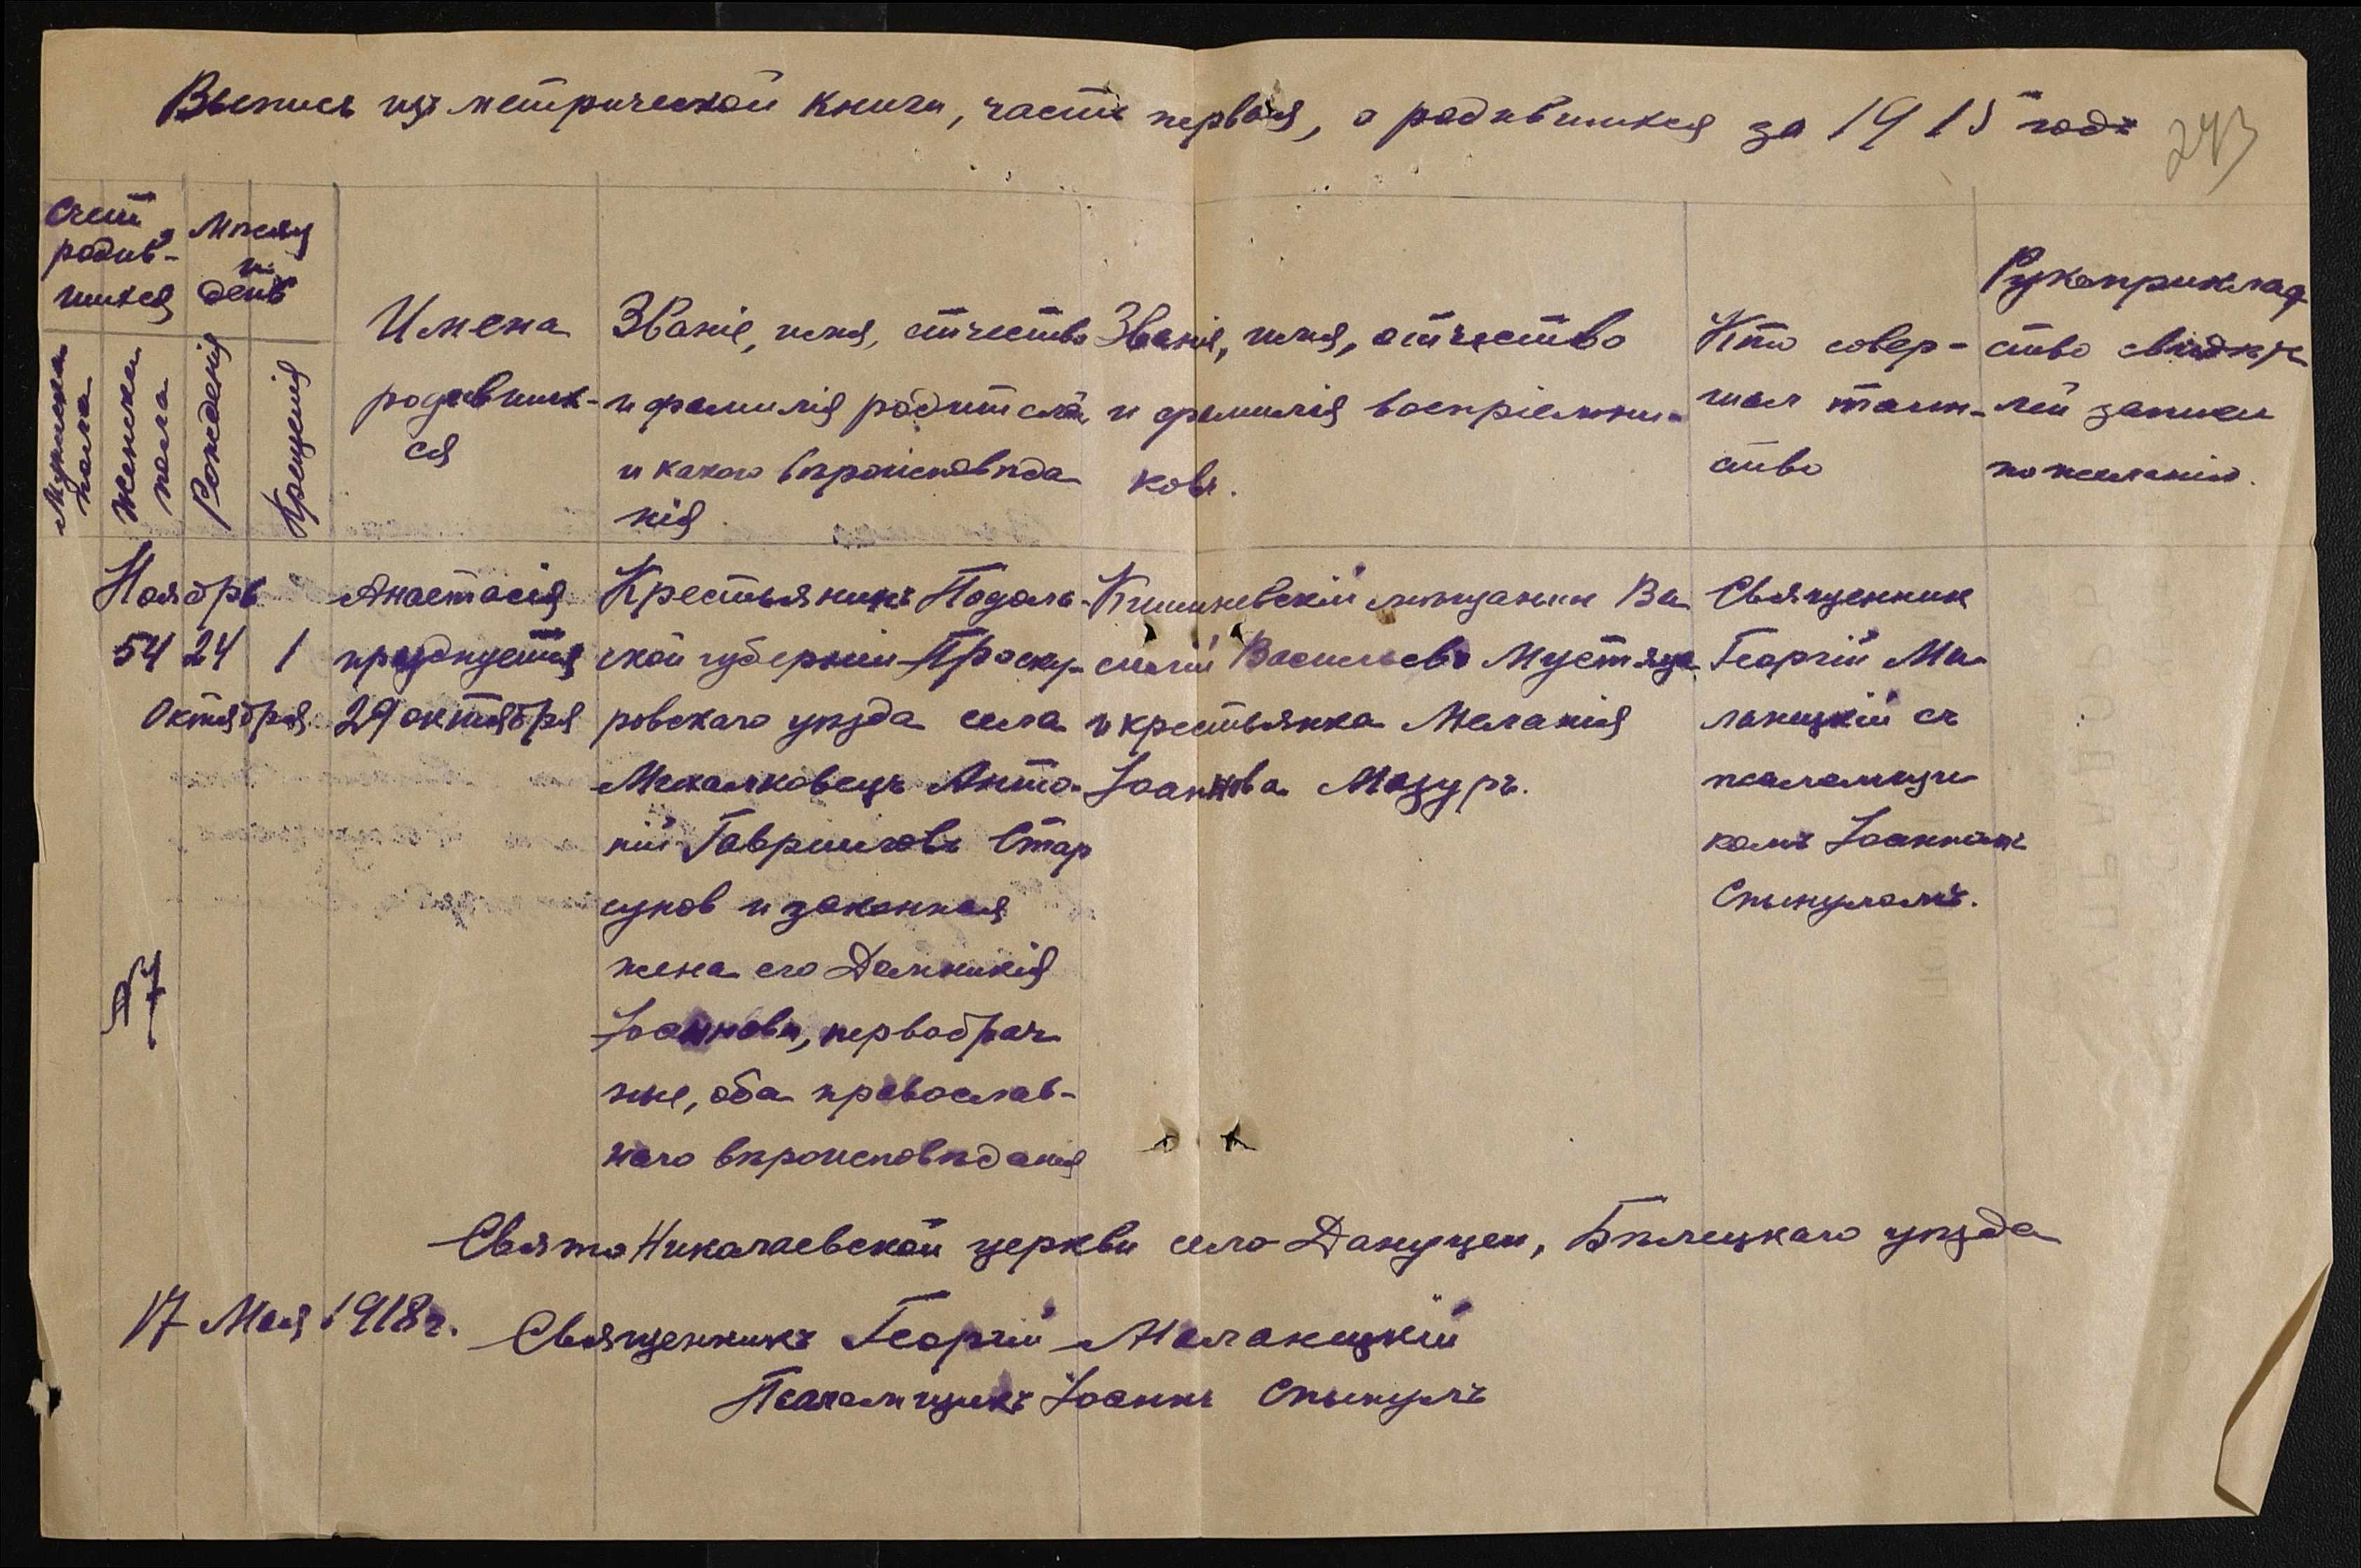 Выпись изъ метрической книги, часть первая, о родившихся за 1915 годъ
273
Счет
родив-
шихся
Мѣсяц
и
день
Мужска
пола
Женска
пола
Рожденія
Крещенія
Имена
родивших-
ся
Званіе, имя, отчество
и фамилія родителей
и какого вѣроисповѣда
нія
Званіе, имя, отчество
и фамилія воспріемни-
ковъ.
Кто совер-
шал таин-
ство
Рукоприклад
ство свидѣте
лей записи
по желанію.
Ноябрь
54 24 1
Октября
Анастасія
празднуется
29 октября
Крестьянинъ Подоль-
ской губерніи Проску-
ровскаго уѣзда села
Мехалковецъ Анто-
ній Гавриилов Стар
суков и законная
жена его Домникія
Іоаннова, первобрач
ные, оба православ-
наго вѣроисповѣданія
Кишиневскій мѣщанин Ва
силій Васильевъ Мустяца
и крестьянка Меланія
Іоаннова Мазуръ.
Священник
Георгій Ма-
ланецкій съ
псаломщи
комъ Іоанномъ
Спынуломъ.
№7
Свято Николаевской церкви село Дануцен, Бѣлецкаго уѣзда
17 Мая 1918 г.
Священникъ Георгій Маланецкій
Псаломщикъ Іоаннъ Спынулъ